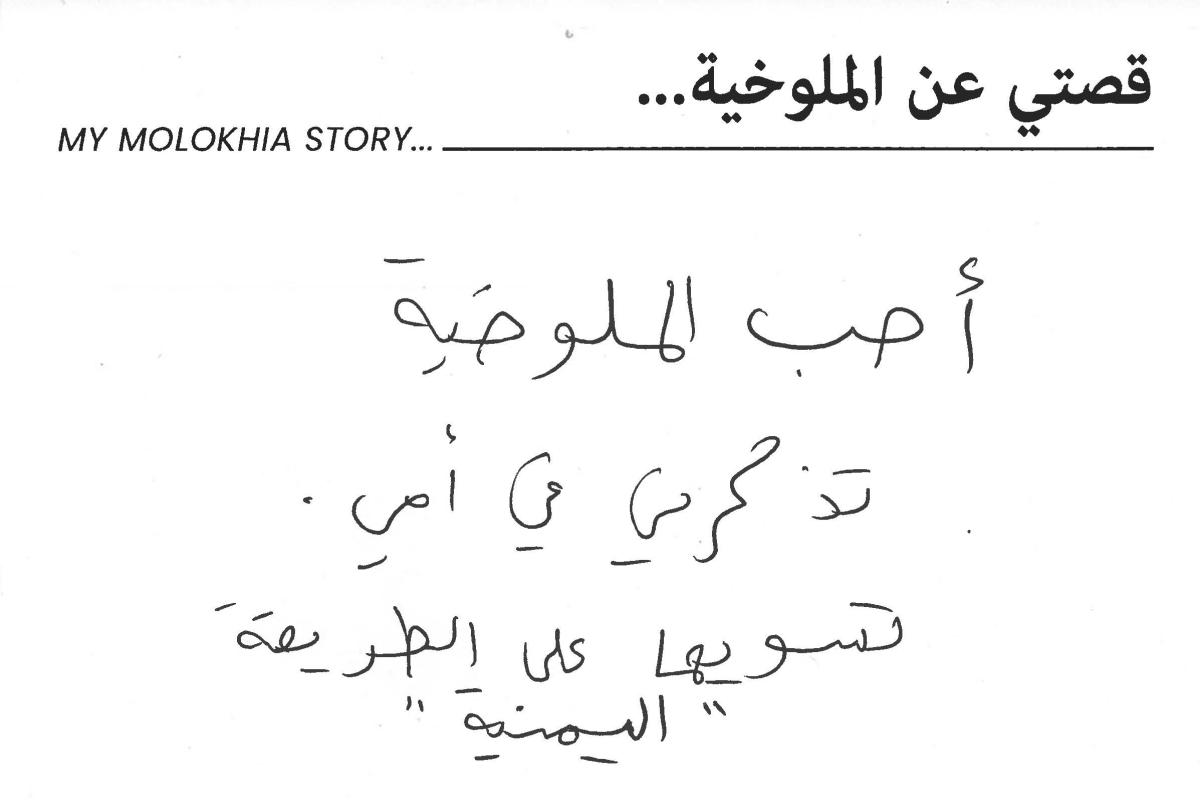 قصتي عن الملوخية...
MY MOLOKHIA STORY...
أحب الملوخية
تذكرني في أمي .
تسويها على الطريقة
"اليمنية"